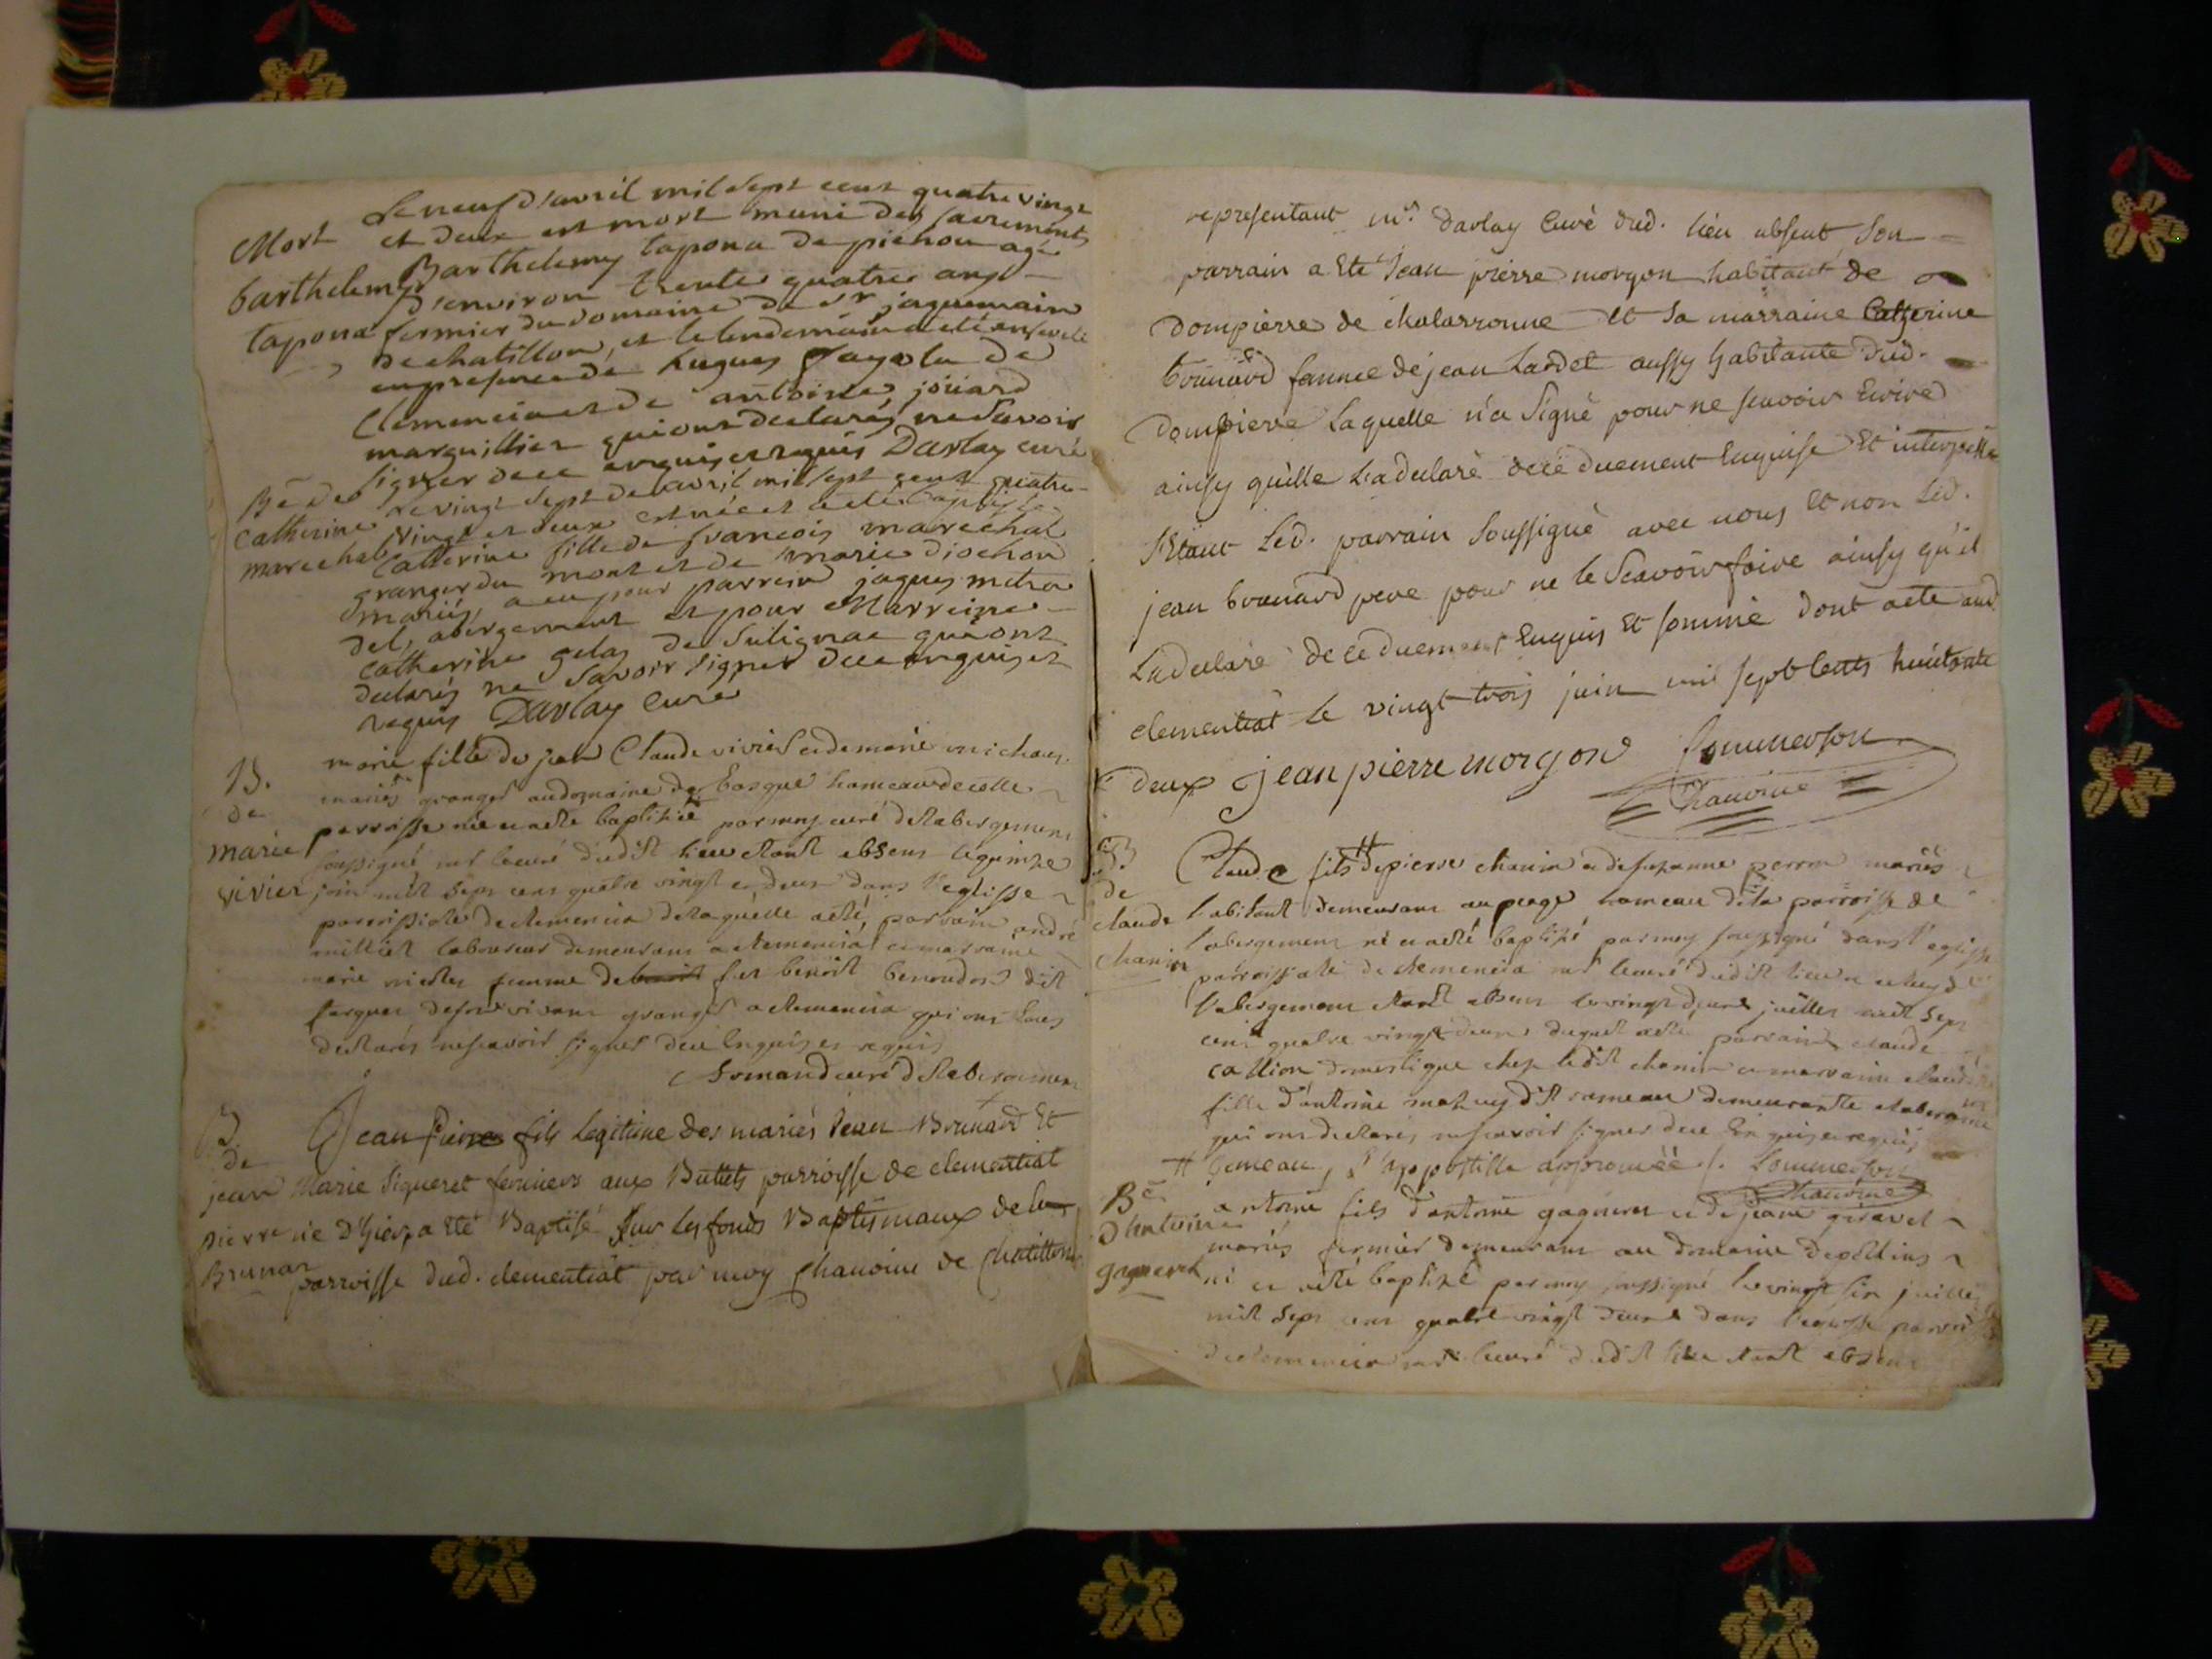 Le neuf d'avril mil sept cent quatre vingt
Mort et deux est mort muni des sacrements
barthelemy Barthelemy tapona de pichou agé
d'environ trente quatre ans
tapona fermier du domaine de sr jaquemain
de chatillon, et le lendemain a eté enseveli
en presence de hugues
Clemencia et de antoine joüard
marguillier qui ont declarés ne savoir
signer de ce enquis et requis Darlay curé
Bê de Le vingt sept de avril mil sept cent quatre
Catherine vingt et deux est née et a eté baptisée
marechal Catherine fille de francois marechal
granger du mont et de marie diochon
mariés, a eu pour parrein jaques
del abergement et pour Marreine
catherine gelas de Sulignac qui ont
declarés ne savoir signer de ce enquis et
requis Darlay curé
B. marie fille de jean Claude vivier et de marie michon
de mariés granger au domaine de basque hameau de celle
marie parroisse née et a eté baptisée par moy curé de l'abergement
vivier soussigné mr le curé dudit lieu etant absent le quinze
juin mil sept cens quatre vingt et deux dans l'eglisse
parroissiale de clemencia de laquelle a eté parrain andré
milliet laboureur demeurant a clemencia et marraine
marie femme de benoit feu benoit dit
granger a clemencia qui ont tous
declarés ne scavoir signer de ce enquis et requis
curé de l'abergement
B. Jean Pierre fils legitime des mariés jean Brunard Et
de
jean Marie Sigueret fermiers aux Buttets parroisse de clementiat
pierre né d'hier, a eté Baptisé sur les fonds Baptismaux de la
Brunar parroisse dud. clementiat par moy Chanoine de Chatillon
representant mr. Darlay Curé dud. lieu absent son
parrain a eté jean pierre morgon habitant de
dompierre de chalarronne et sa marraine Catherine
brunard femme de jean Lardet aussy habitante dud.
dompierre Laquelle n'a signé pour ne scavoir Ecrire
ainsy qu'elle L'a declaré de ce duement Enquise Et interpellée
Etant Led. parrain soussigné avec nous et non Led.
jean brunard pere pour ne le Scavoir faire ainsy qu'il
L'a declaré de ce duement Enquis Et sommé dont acte aud.
clementiat Le vingt trois juin mil sept Cents huitante
deux jean pierre morgon Commerson
Chanoine
B. Claude fils # de pierre chanin et de suzanne perron mariés
de habitant demeurant au peage hameau de la parroisse de
claude l'abergement né et a eté baptisé par moy soussigné dans l'eglisse
chanin parroissiale de clemencia mr le curé dudit lieu et celuy de
l'abergement etant absens le vingt deux juillet mil sept
cens quatre vingt deux duquel a eté parrain claude
domestique chez ledit chanin et marraine claudine
fille d'antoine dit rameau demeurante a l'abergement
qui ont declarés ne scavoir signer de ce Enquis et requis
# gemeau, L'appostille approuvéé /. Commerson
Chanoine
Bê antoine fils d'antoine gagneret et de jeane giravel
d'Antoine mariés fermier demeurant au domaine
gagneret né et a eté baptisé par moy soussigné le vingt six juillet
mil sept cens quatre vingt deux dans l'eglisse parroissiale
de clemencia mr le curé dudit lieu etant absent